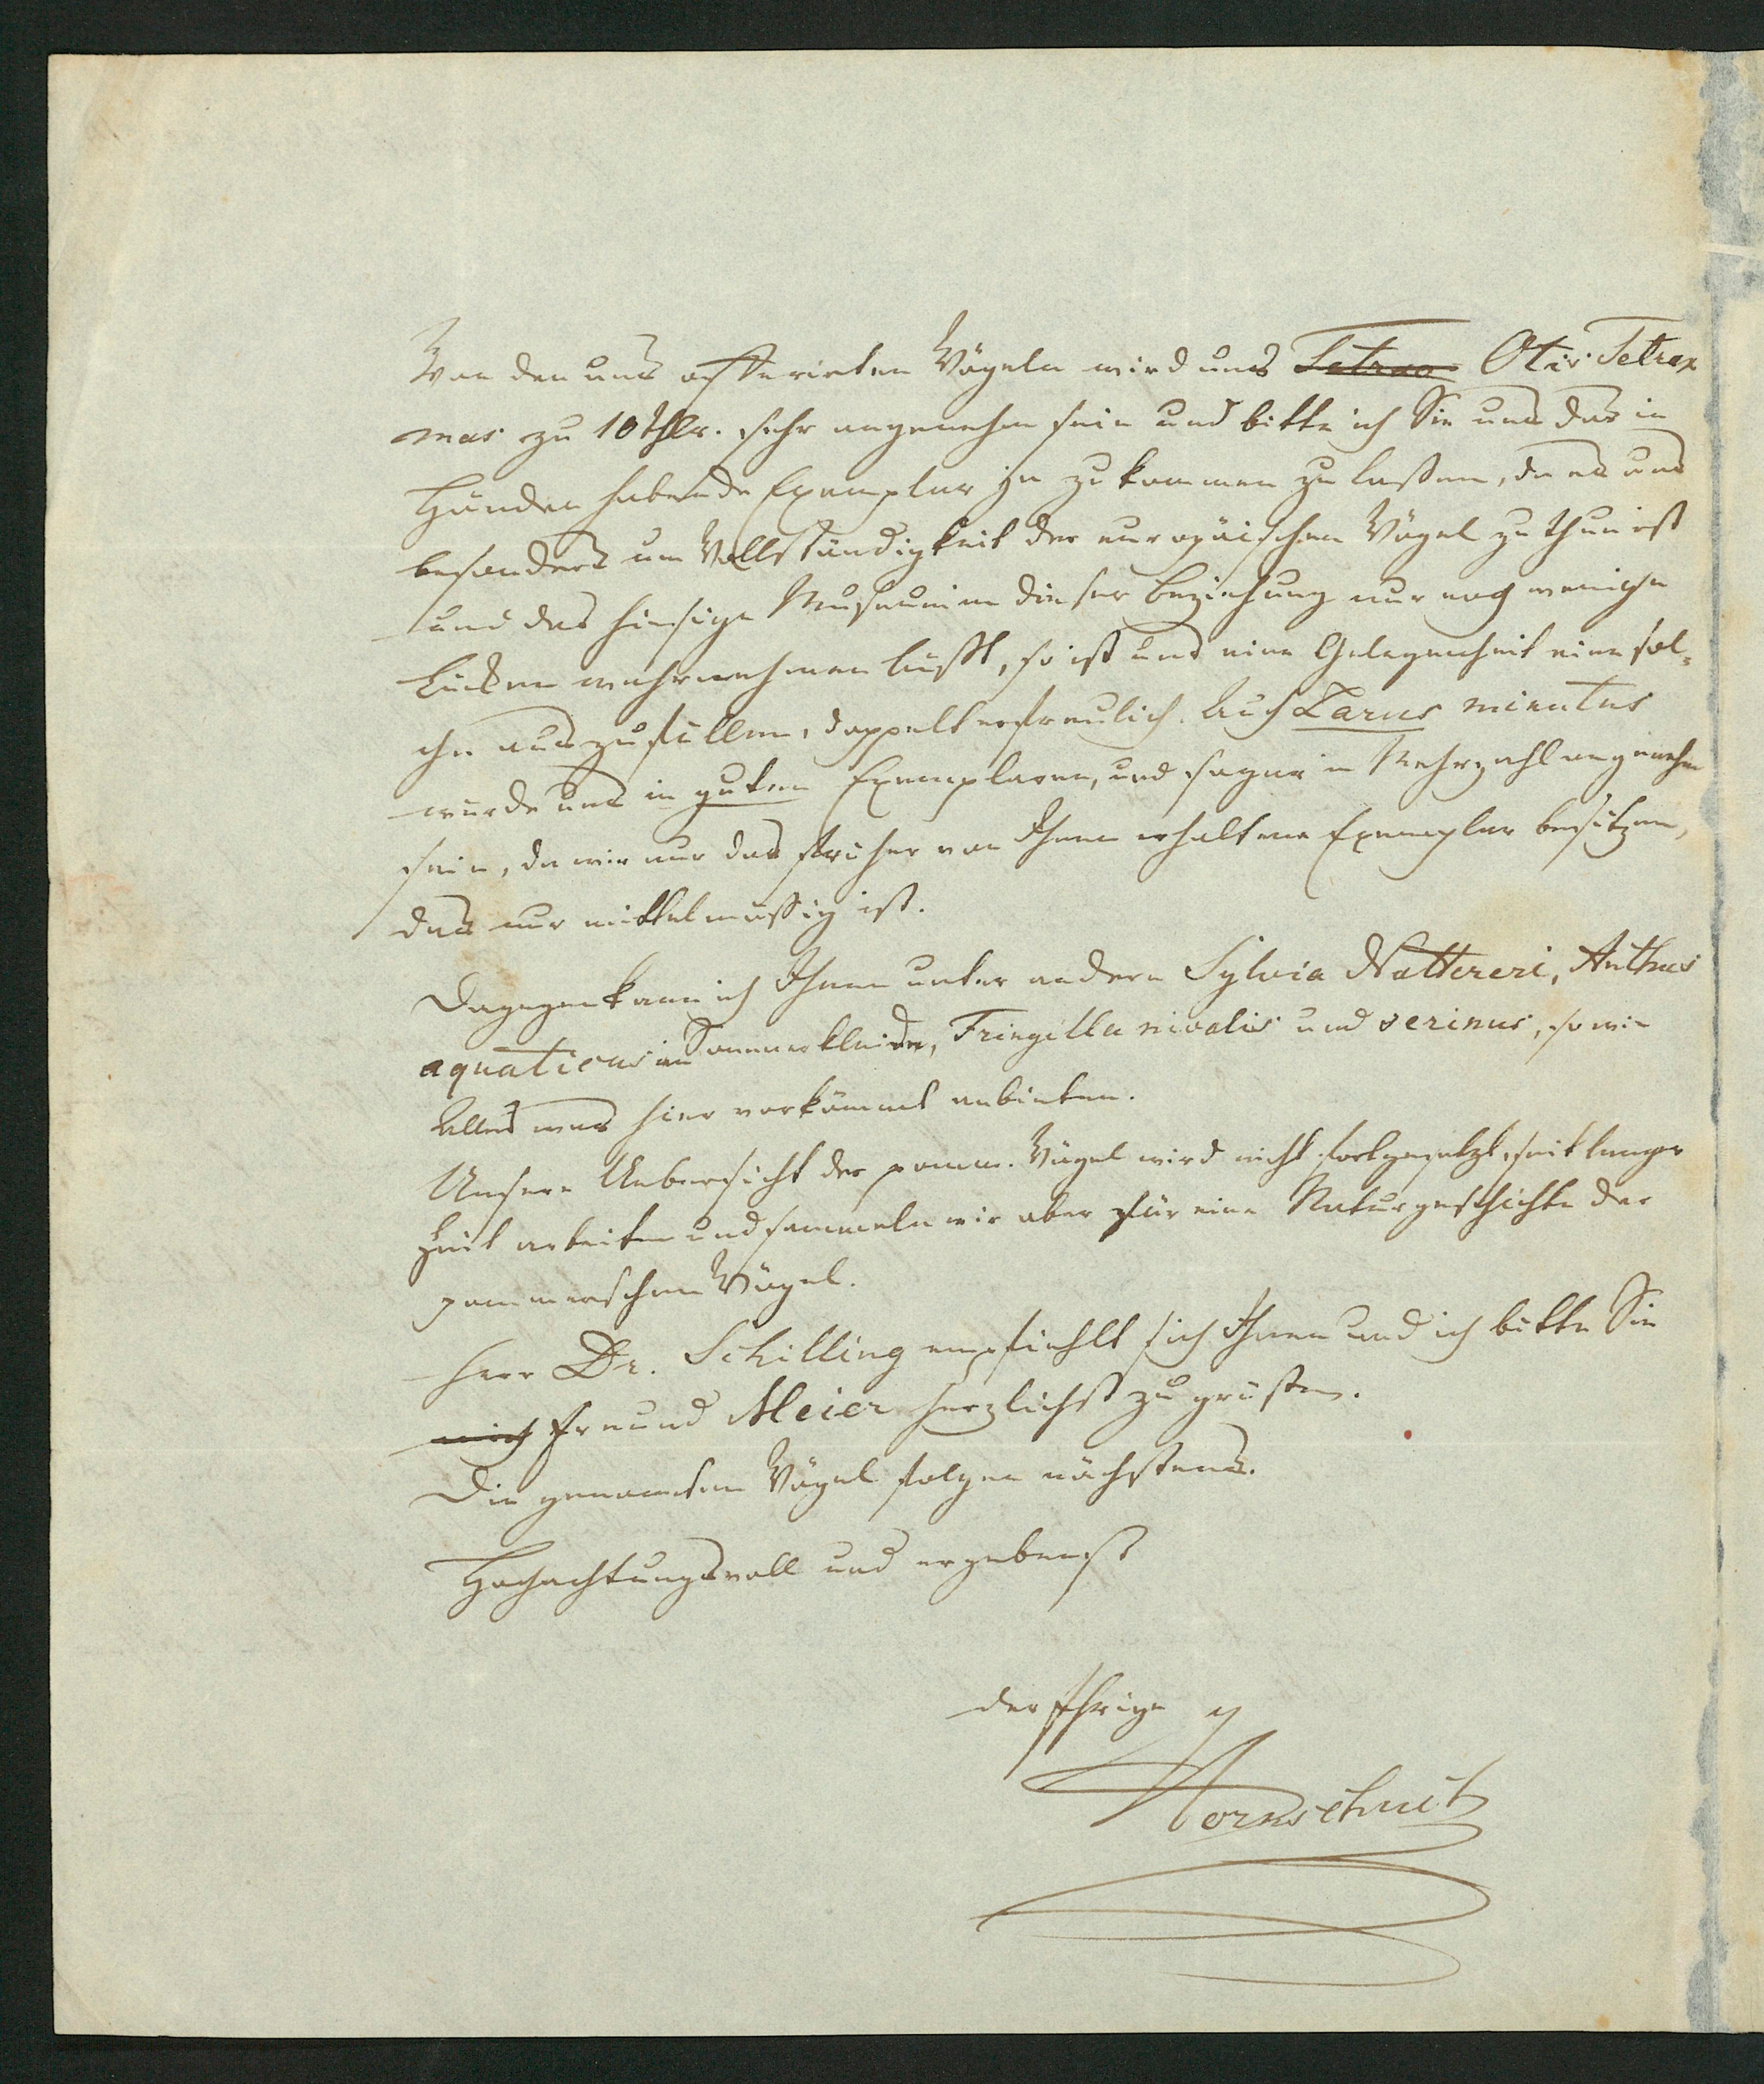 Von den uns offerirten Vögeln wird uns Tetrao Otis Tetrax
mas zu 10 Thlr. sehr angenehm sein und bitte ich Sie uns das in
Händen habende Exemplar ja zukommen zu lassen, da es uns
besonders um Vollständigkeit der europäischen Vögel zu thun ist
und das hiesige Museum in dieser Beziehung nur noch wenige
Lücken wahrnehmen lässt, so ist uns eine Gelegenheit eine sol-
che auszufüllen, doppelt erfreulich. Auch Larus minutus
würde uns in guten Exemplaren, und sogar in Mehrzahl angenehm
sein, da wir nur das früher von Ihnen erhaltene Exemplar besitzen,
das nur mittelmässig ist.
Dagegen kann ich Ihnen unter andern Sylvia Nattereri, Anthus
aquaticus im Sommerkleide, Fringilla nivalis und serinus, so wie
Alles was hier vorkömmt anbieten.
Unsere Uebersicht der pomm. Vögel wird nicht fortgesetzt, seit langer
Zeit arbeiten und sammeln wir aber für eine Naturgeschichte der
pommerschen Vögel.
Herr Dr. Schilling empfiehlt sich Ihnen und ich bitte Sie
mich Freund Meier herzlichst zu grüssen.
Die genannten Vögel folgen nächstens.
Hochachtungsvoll und ergebenst
der Ihrige
Hornschuch